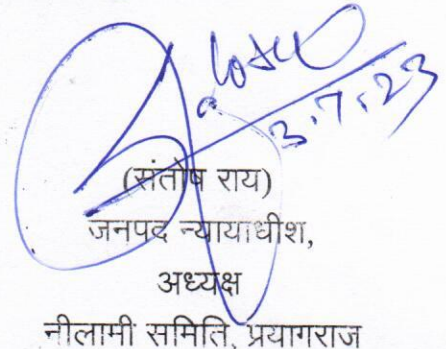 3.7.23
(संतोष राय)
जनपद न्यायाधीश,
अध्यक्ष
नीलामी समिति, प्रयागराज